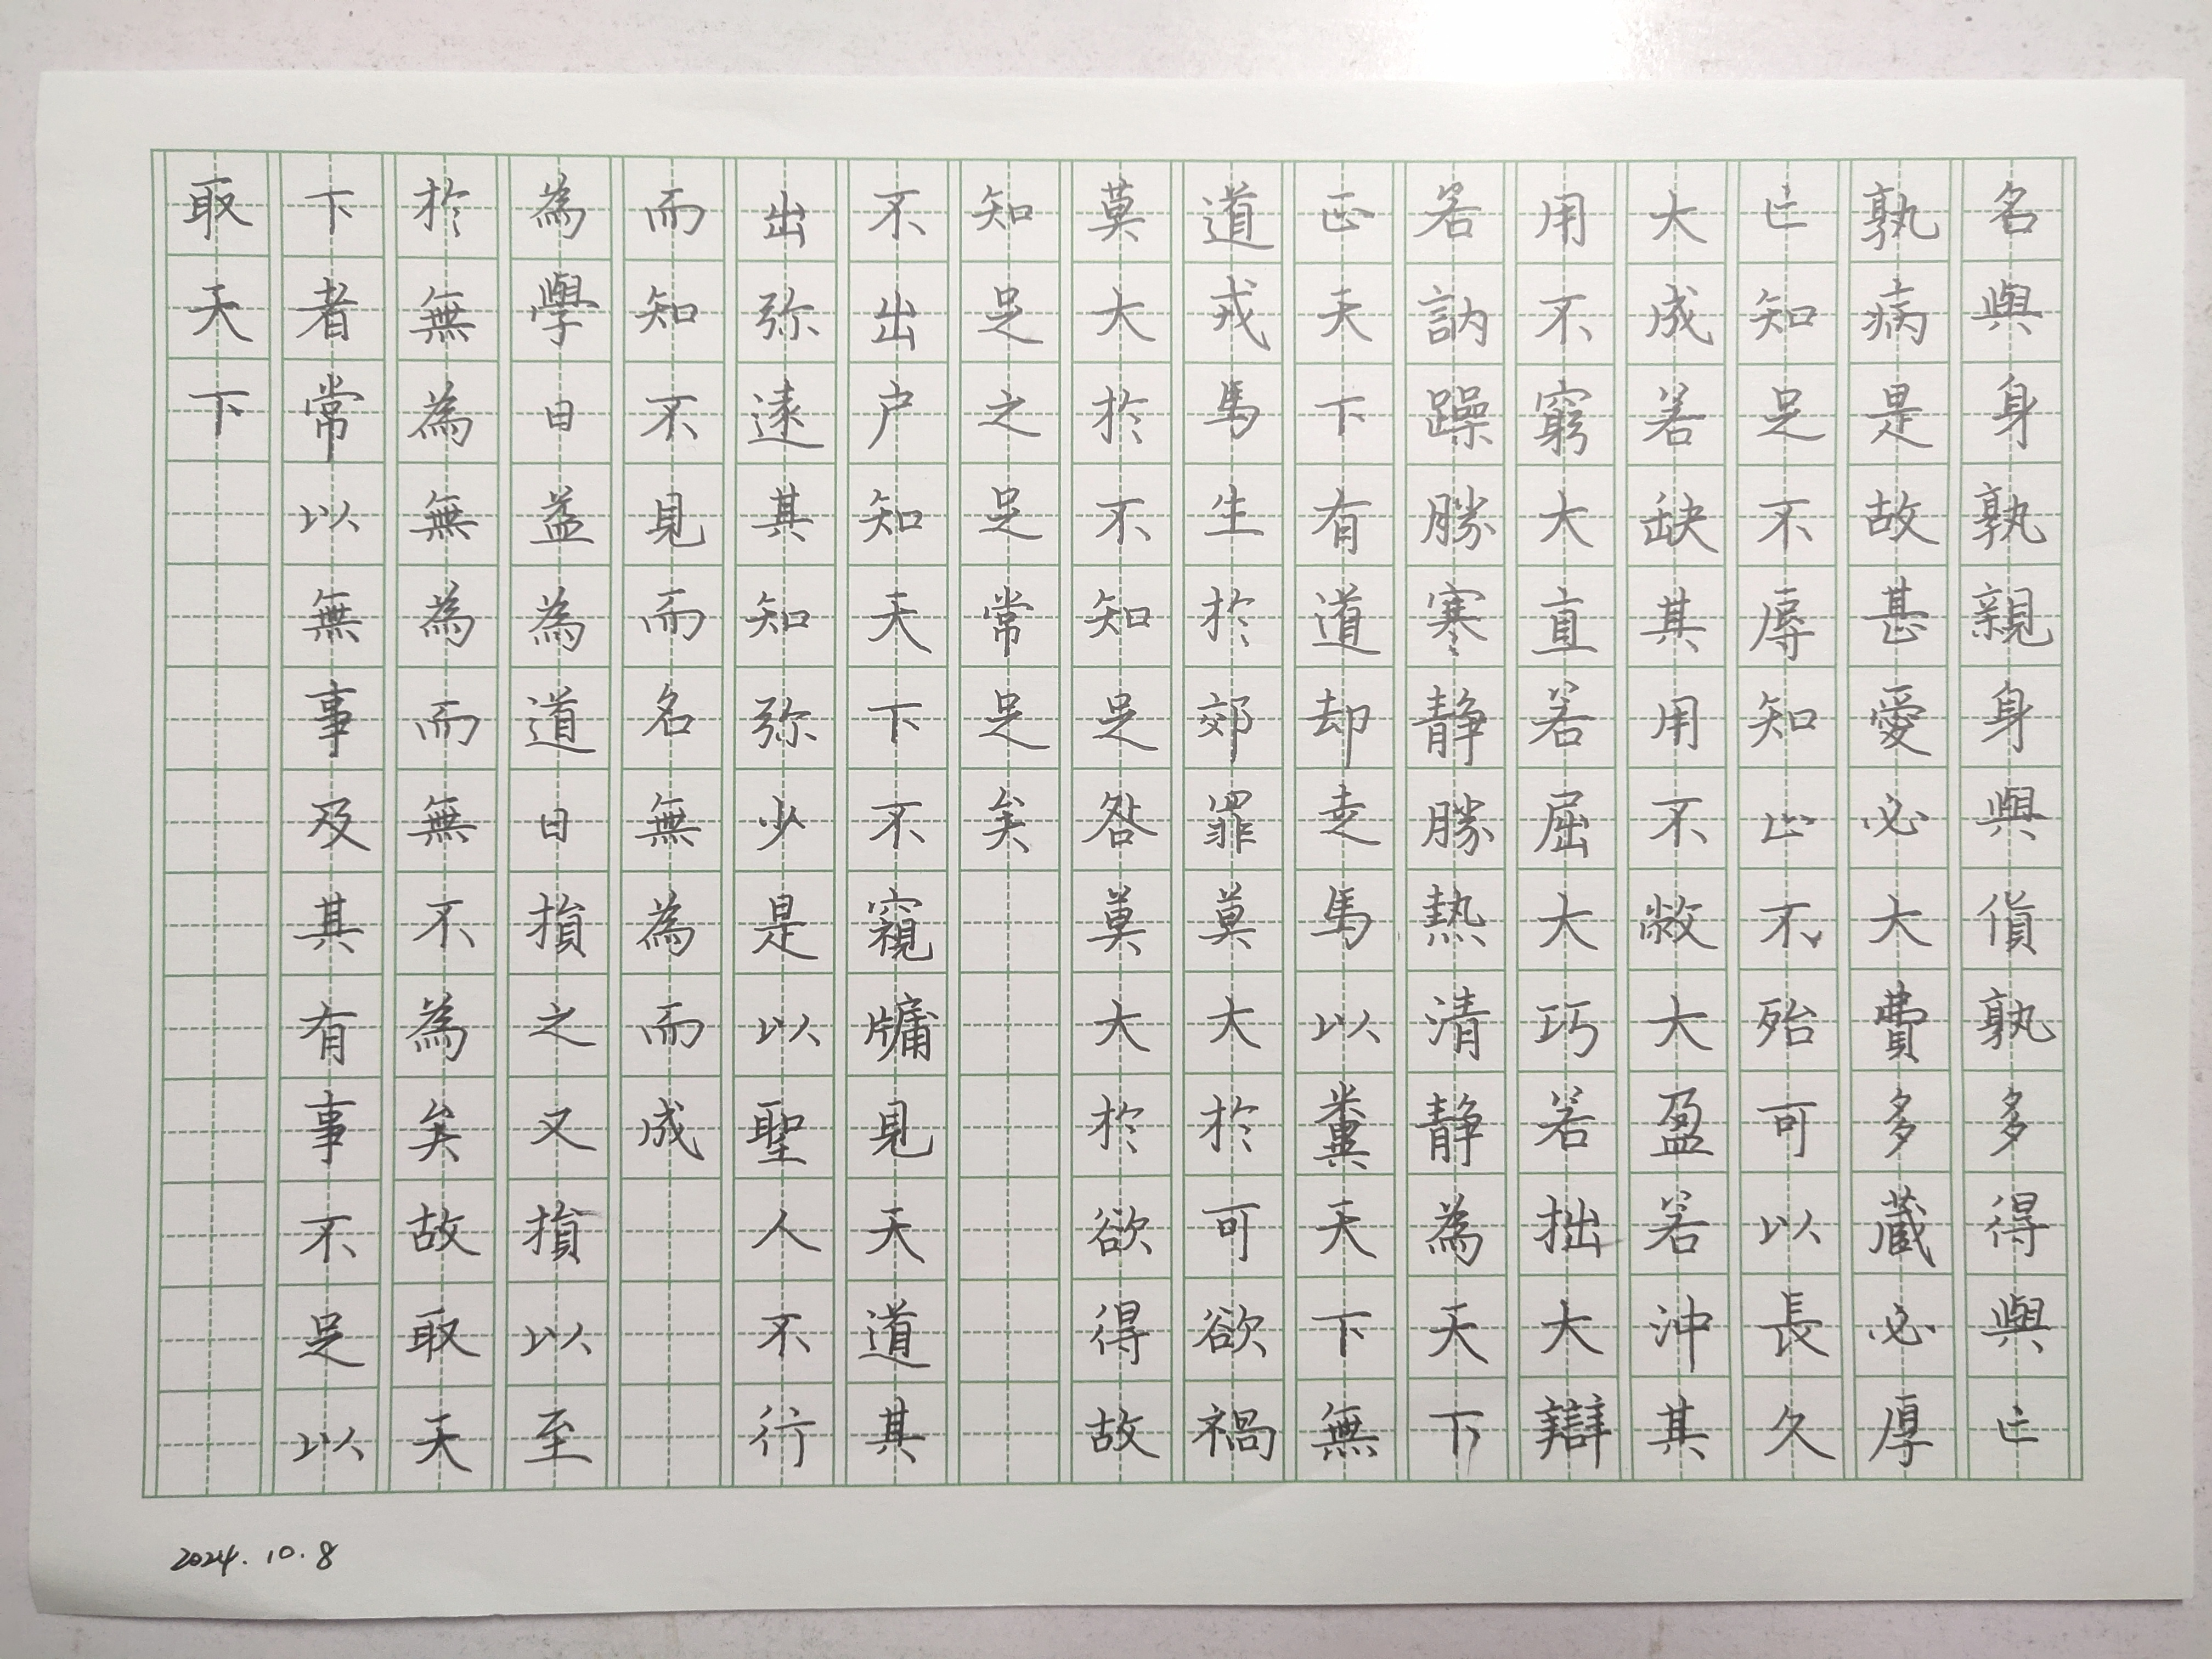 名與身孰親身與貨孰多得與亡
孰病是故甚愛必大費多藏必厚
亡知足不辱知止不殆可以長久
大成若缺其用不敝大盈若沖其
用不窮大直若屈大巧若拙大辯
若訥躁勝寒靜勝熱清靜為天下
正天下有道却走馬以糞天下無
道戎馬生於郊罪莫大於可欲禍
莫大於不知足咎莫大於欲得故
知足之足常足矣
不出户知天下不窺牖見天道其
出弥遠其知弥少是以聖人不行
而知不見而名無為而成
為學日益為道日損之又損以至
於無為無為而無不為矣故取天
下者常以無事及其有事不足以
取天下
2024.10.8